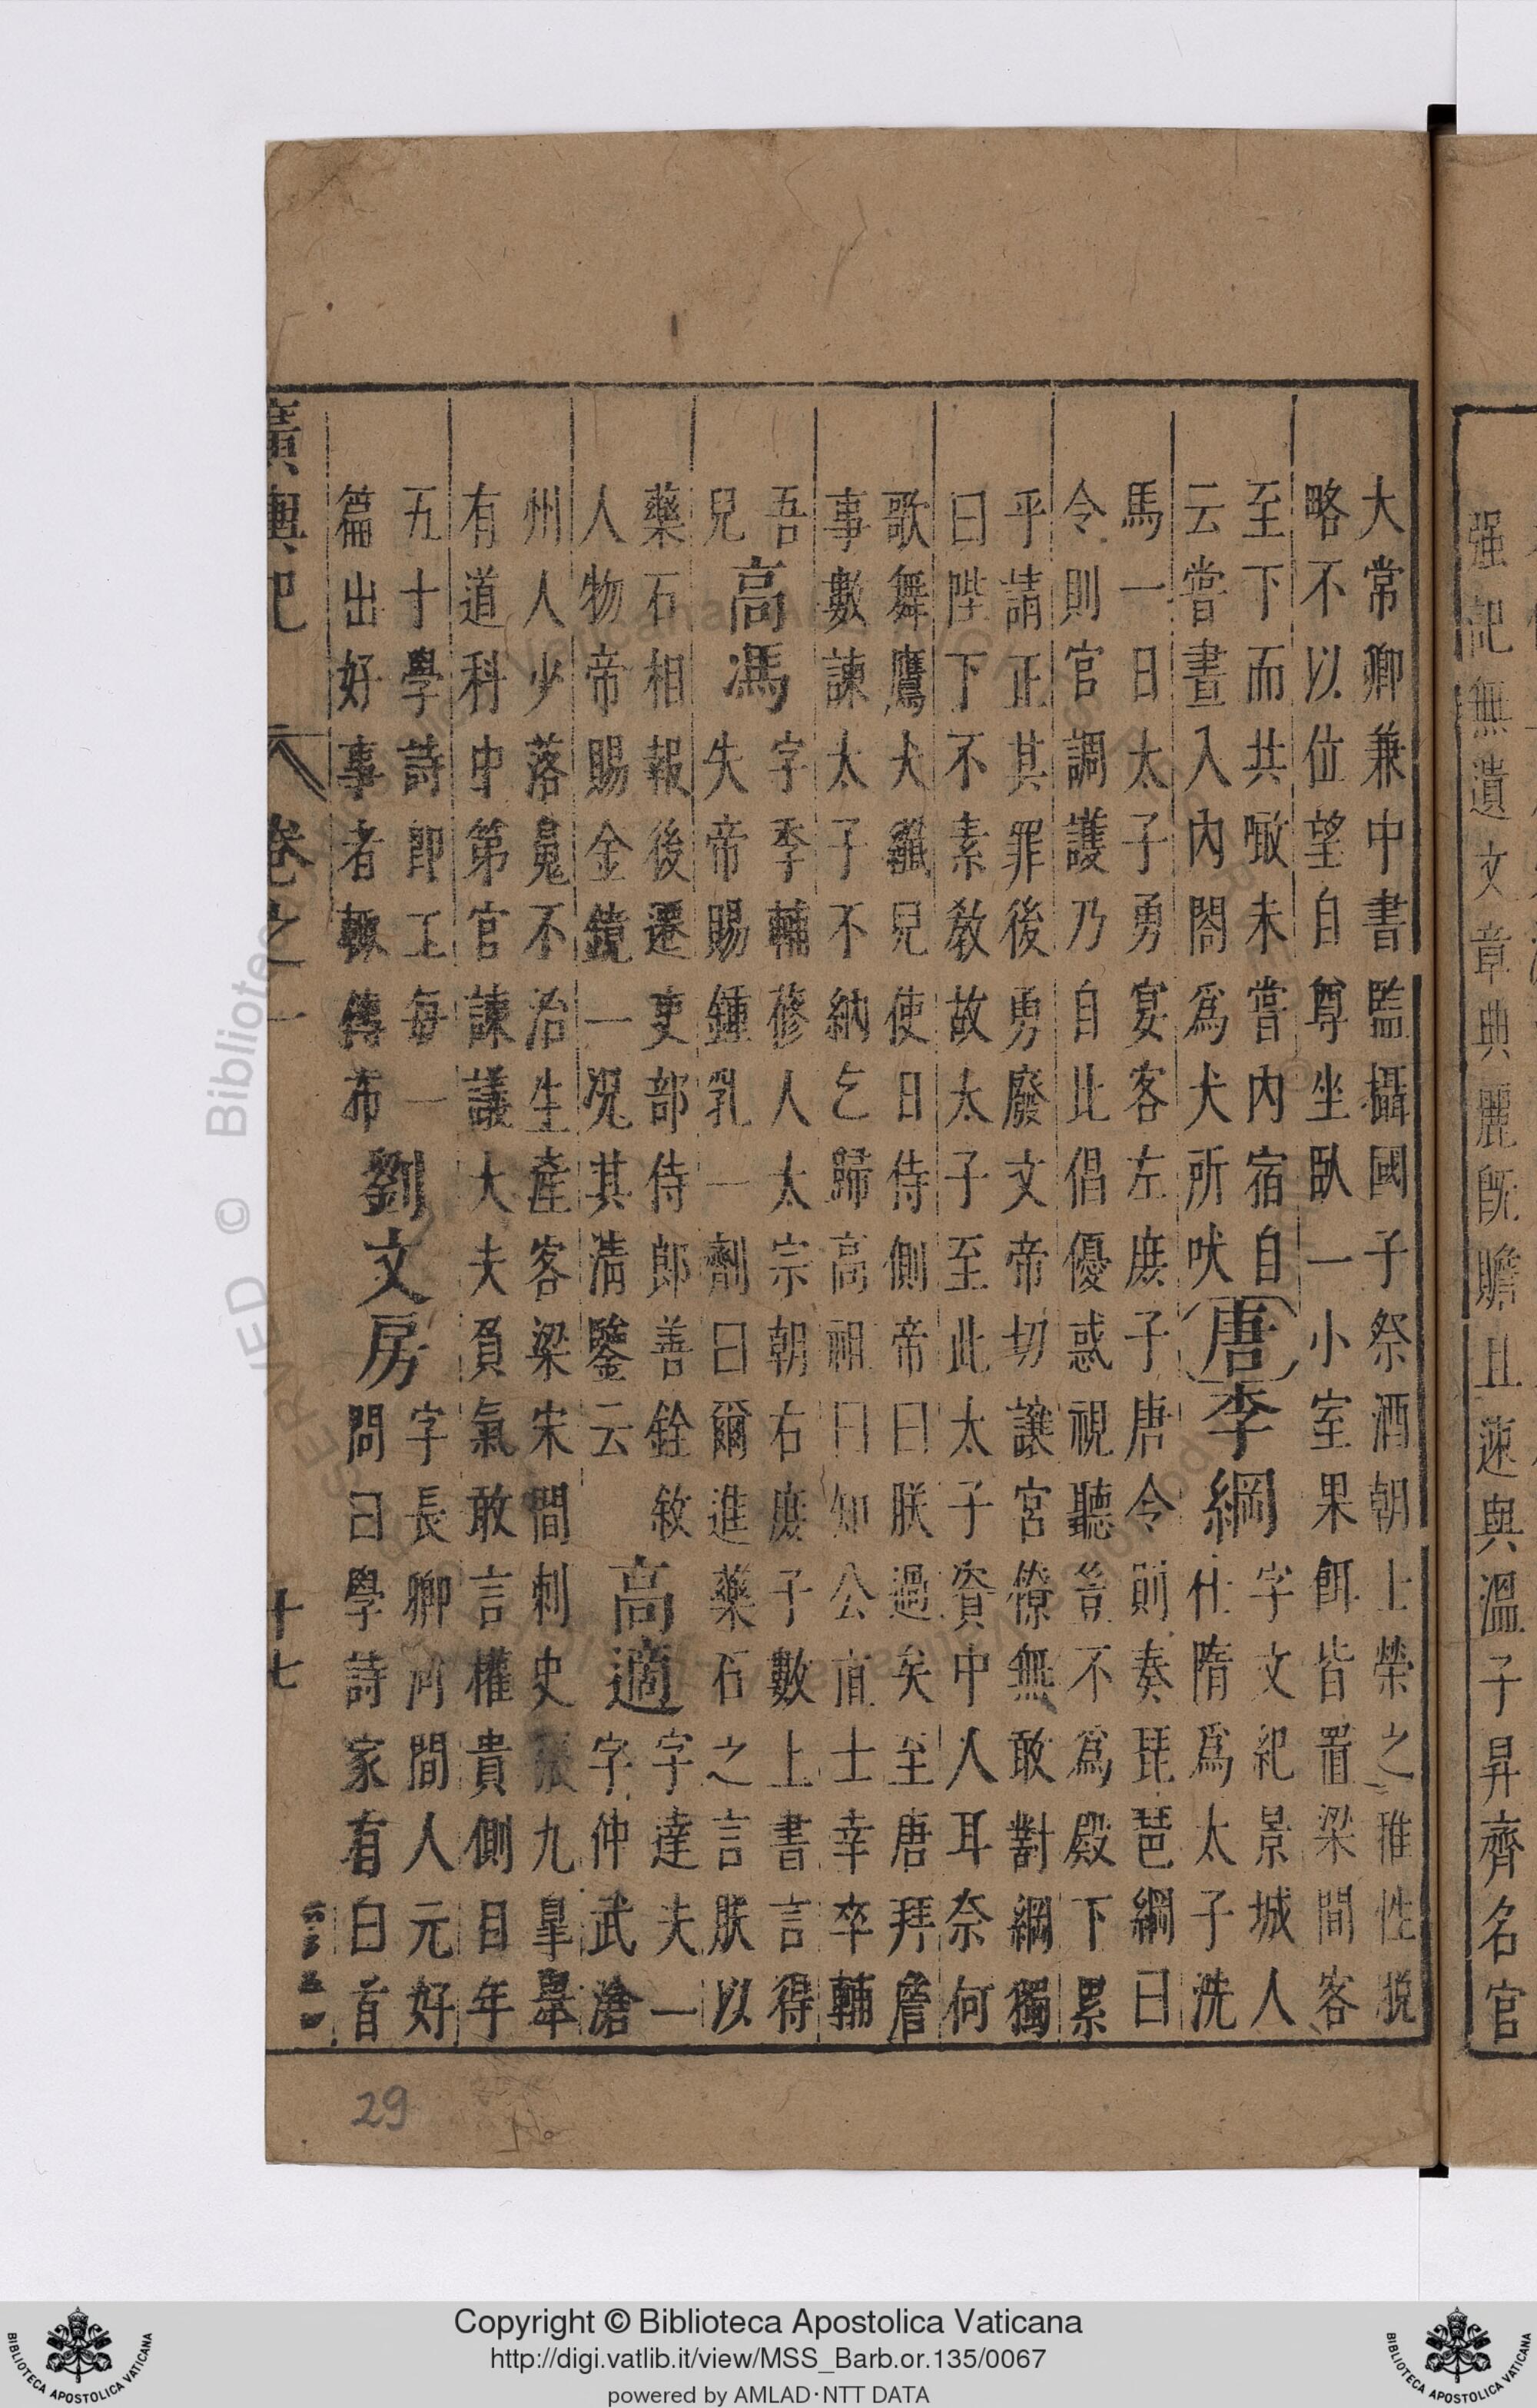 强記無遺文章典麗旣贍且速與溫子昇齊名官
大常卿兼中書監攝國子祭酒朝上榮之雅性脫
略不以位望自尊坐臥一小室果餌皆置梁間客
至下而共噉未嘗內宿自
云嘗晝入內閤爲犬所吠
唐李綱
字文紀景城人
仕隋爲太子洗
馬一日太子勇宴客左庶子唐令則奏琵琶綱曰
令則官調護乃自比倡優惑視聽豈不爲殿下累
乎請正其罪後勇廢文帝切讓宮僚無敢對綱獨
曰陛下不素敎故太子至此太子資中人耳奈何
歌舞鷹犬纖兒使日侍側帝曰朕過矣至唐拜詹
事數諫太子不納乞歸高祖曰知公直士幸卒輔
吾
兒
高馮
字季輔蓚人太宗朝右庶子數上書言得
失帝賜鍾乳一劑曰爾進藥石之言朕以
藥石相報後遷吏部侍郎善銓敘
人物帝賜金鏡一况其淸鑒云
高適
字達夫一
字仲武滄
州人少落魄不治生產客梁宋間刺史張九皐舉
有道科中第官諫議大夫負氣敢言權貴側目年
五十學詩卽工每一
篇出好事者輒傳布
劉文房
字長卿河間人元好
問曰學詩家有白首
廣輿記 卷之一 十七
29
Copyright © Biblioteca Apostolica Vaticana
http://digi.vatlib.it/view/MSS_Barb.or.135/0067
powered by AMLAD·NTT DATA
BIBLIOTECA APOSTOLICA VATICANA
BIBLIOTECA APOSTOLICA VATICANA